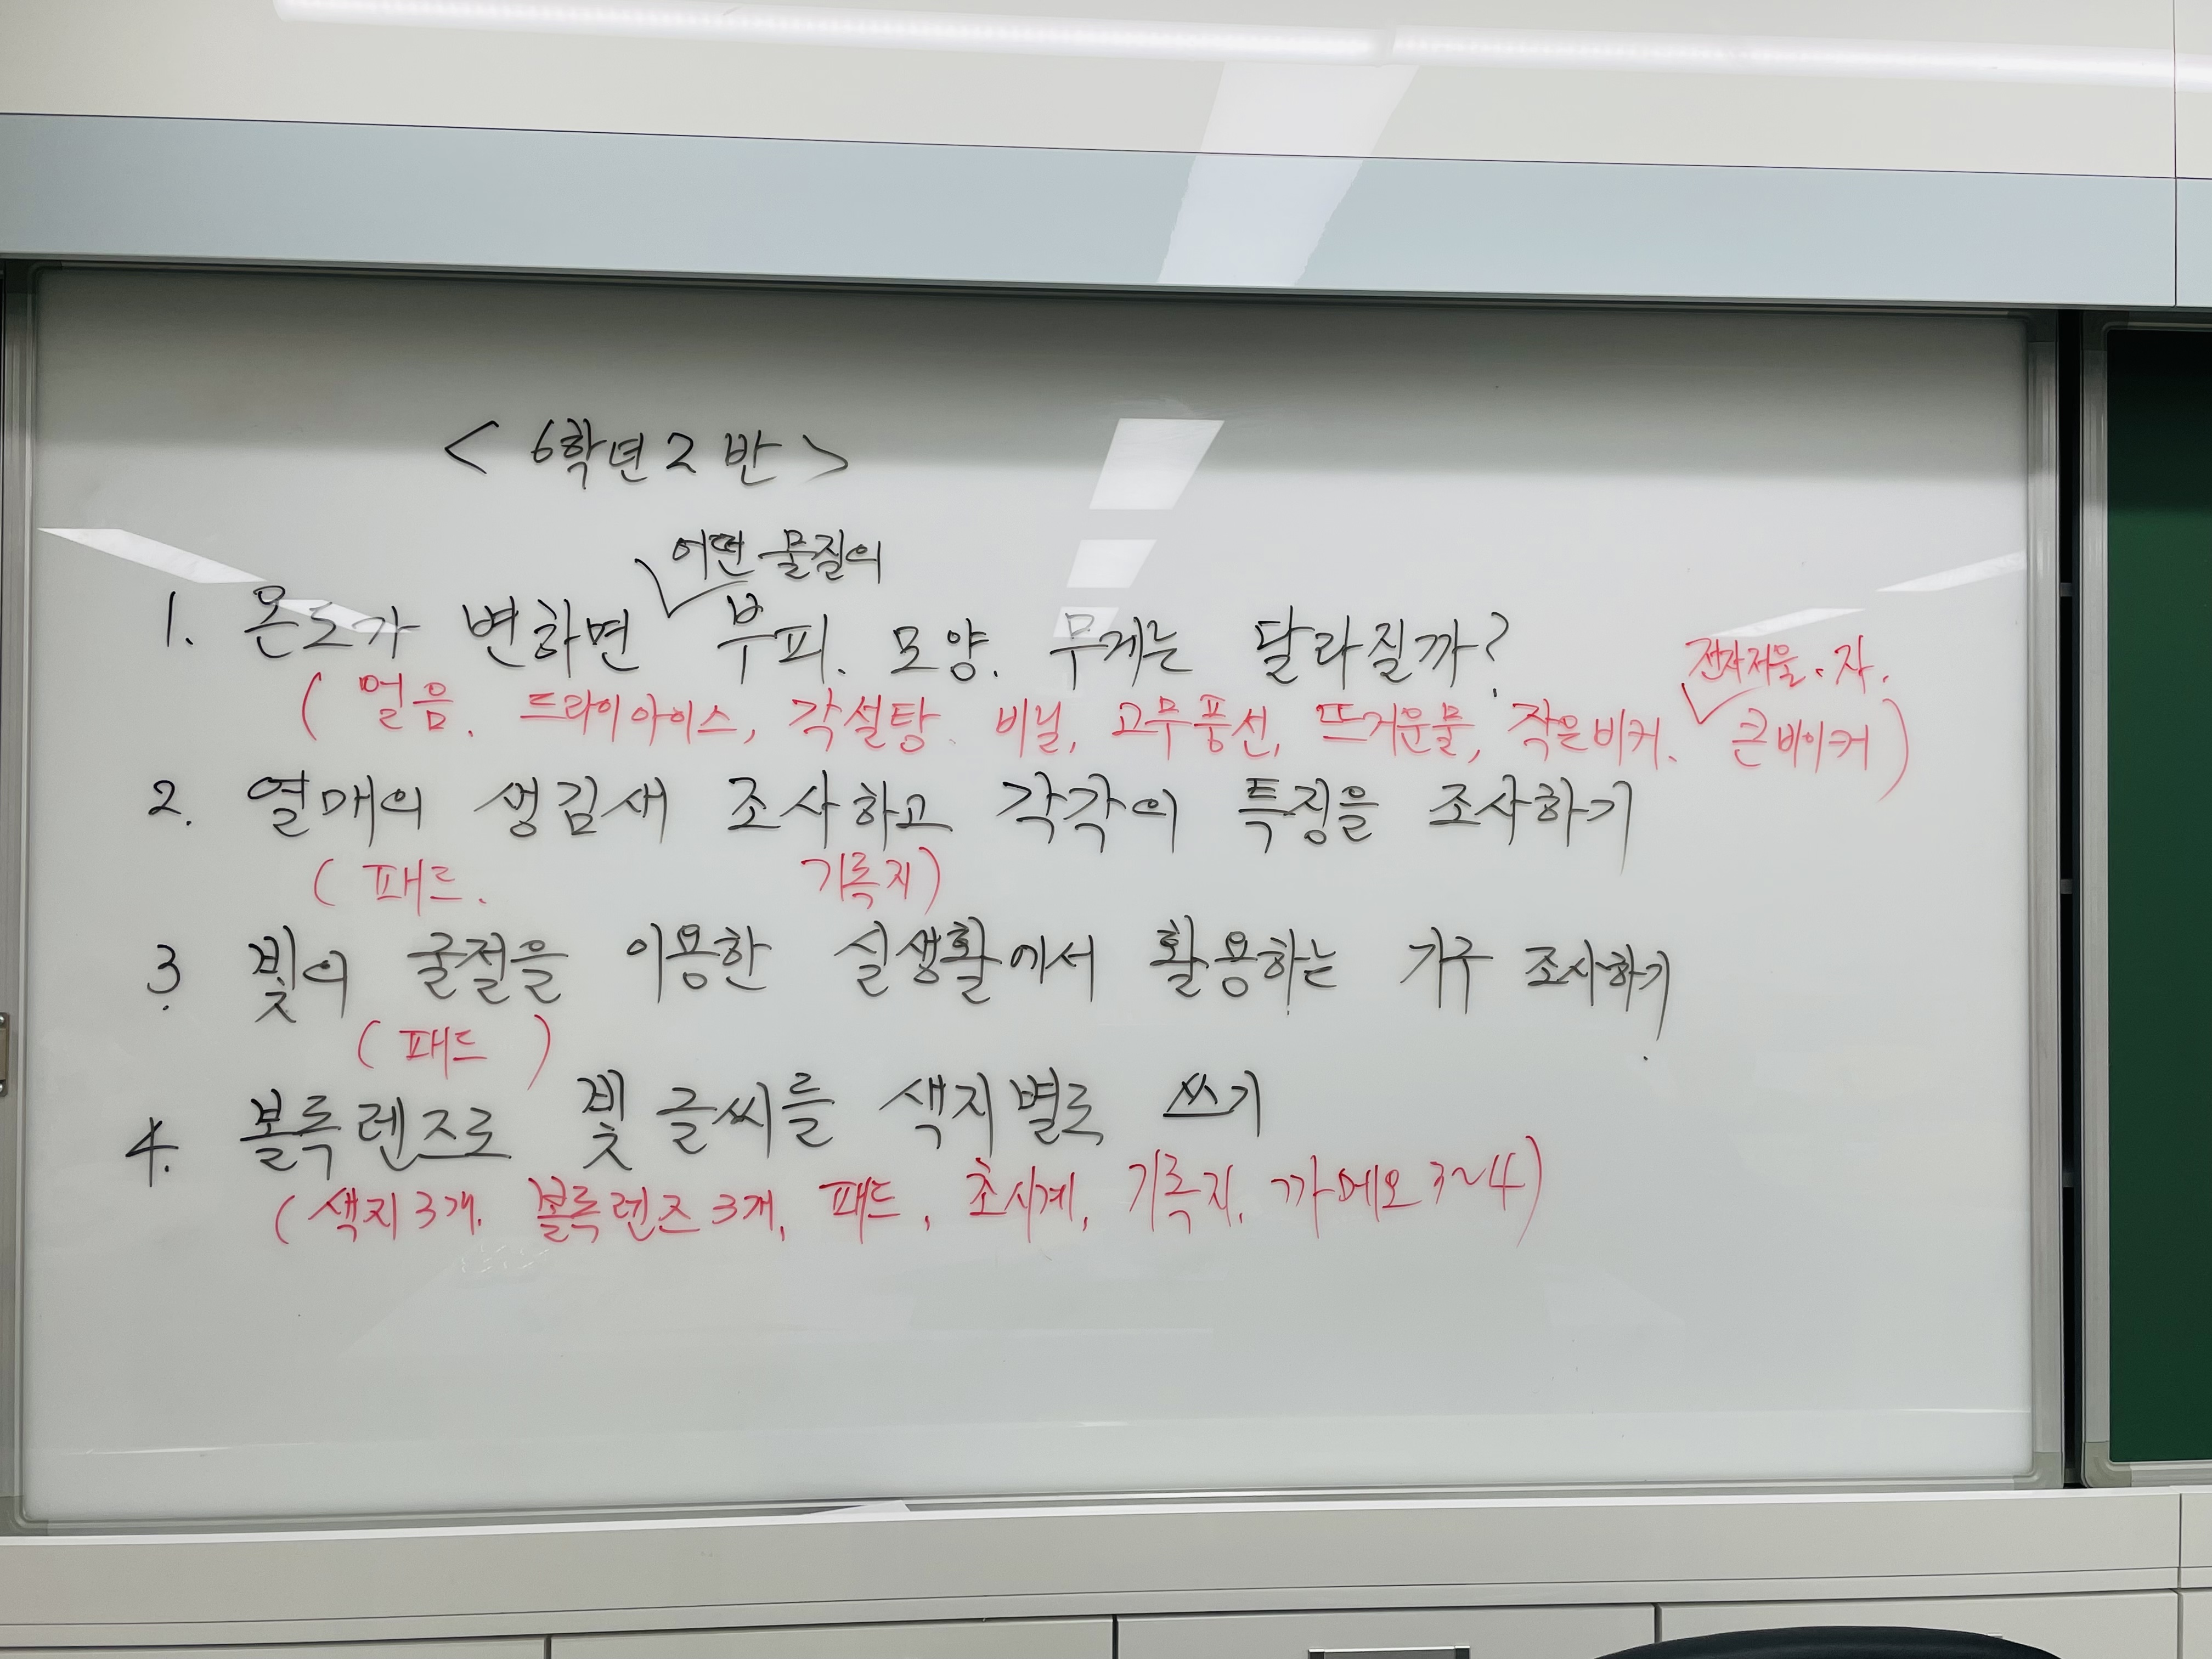 < 6학년 2반 >
어떤 물질의
1. 온도가 변하면 부피. 모양. 무게는 달라질까?
전자저울. 자.
( 얼음. 드라이아이스, 각설탕. 비닐, 고무풍선, 뜨거운물, 작은비커. 큰비이커)
2. 열매의 생김새 조사하고 각각의 특징을 조사하기
( 패드. 기록지)
3. 빛의 굴절을 이용한 실생활에서 활용하는 가구 조사하기
( 패드 )
4. 볼록렌즈로 빛 글씨를 색지별로 쓰기
( 색지 3개. 볼록렌즈 3개, 패드, 초시계, 기록지. 까메오 3~4)